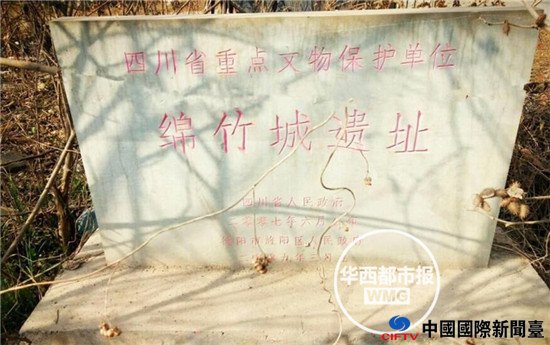 四川省重点文物保护单位
绵竹城遗址
四川省人民政府
二零零七年六月
德阳市旌阳区人民政府
华西都市报
WMG
CIFTV
中國國際新聞臺